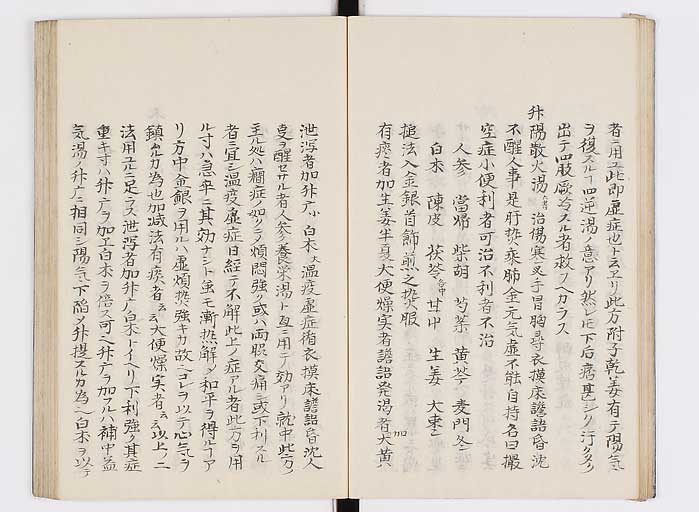 者ニ用ユ此即虚症也ト云ヱリ此方附子乾姜有テ陽気
ヲ復スルヿ四逆湯ノ意アリ然レ𪜈下后痞甚シク汗
出テ四肢厥冷スル者救フヘカラス
升陽散火湯 治傷寒叉手冒胸尋衣摸床譫語昏沈
不醒人事是肝熱乗肺金元気虚不能自持名曰撮
空症小便利者可治不利者不治
人参 當帰 柴胡 芍薬 黄芩 麦門冬
白朮 陳皮 茯苓 甘中 生姜 大棗
搥法入金銀首飾煎之熱服
有痰者加生姜半夏大便燥実者譫語発渇者加大黄
泄瀉者加升广白朮 温疫虚症循衣摸床譫語昏沈人
㕝ヲ醒セサル者人参養栄湯ト互ニ用テ効アリ就中此方ノ
主ル処ハ癇症ノ如クテ煩悶強ク或ハ両脇交痛ミ或下利スル
者ニ宜シ温疫虚症日経テ不解此上ノ症アル者此方ヲ用
ル寸ハ急卒ニ其効ナシト虽モ漸熱解メ和平ヲ得ルヿア
リ方中金銀ヲ用ルハ虚煩熱強キカ故ニコレヲ以テ心気ヲ
鎮ルカ為也加減法有痰者云云大便燥実者云云以上ノ二
法用ルニ足ラス泄瀉者加升广白朮トイヘリ下利強ク其症
重キ寸ハ升广ヲ加ヱ白朮ヲ倍ス可シ升广ヲ加フルハ補中益
気湯ノ升广ニ相同シ陽気下陥メ升提スルカ為ニ白朮ヲ以テ